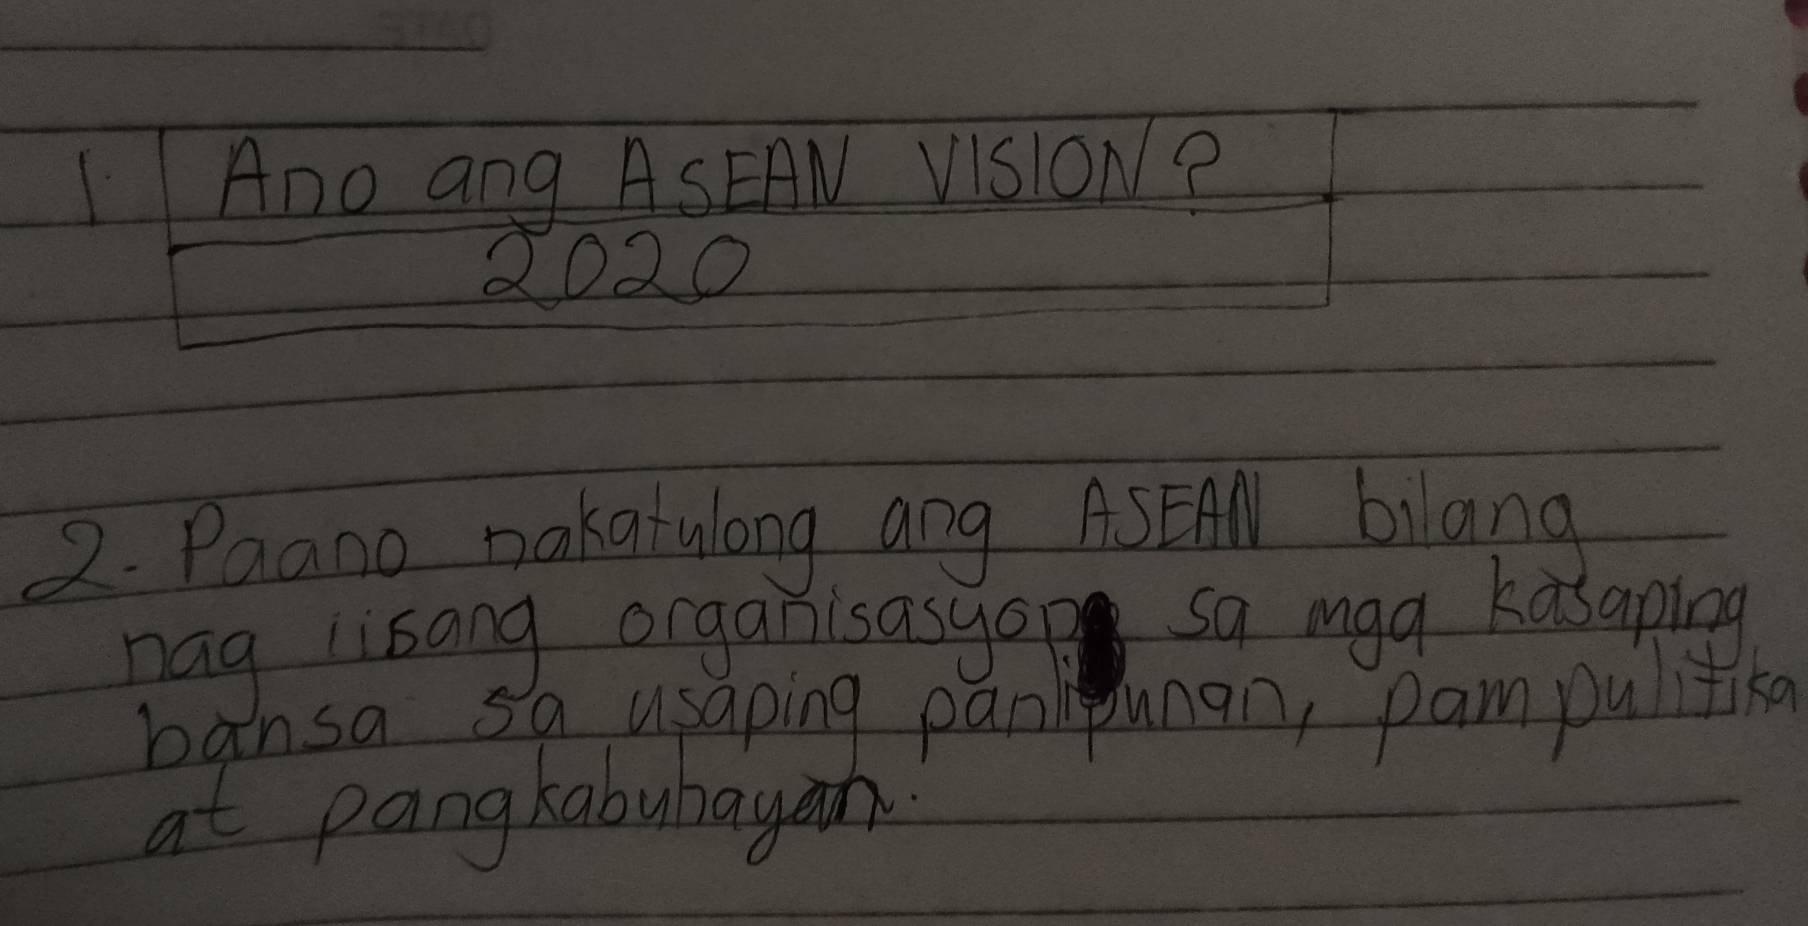 1. Ano ang ASEAN VISION?
2020
2. Paano nakatulong ang ASEAN bilang
nag iisang organisasyon sa mga kasaping
bansa sa usaping panlipunan, pampulitika
at pangkabuhayan.